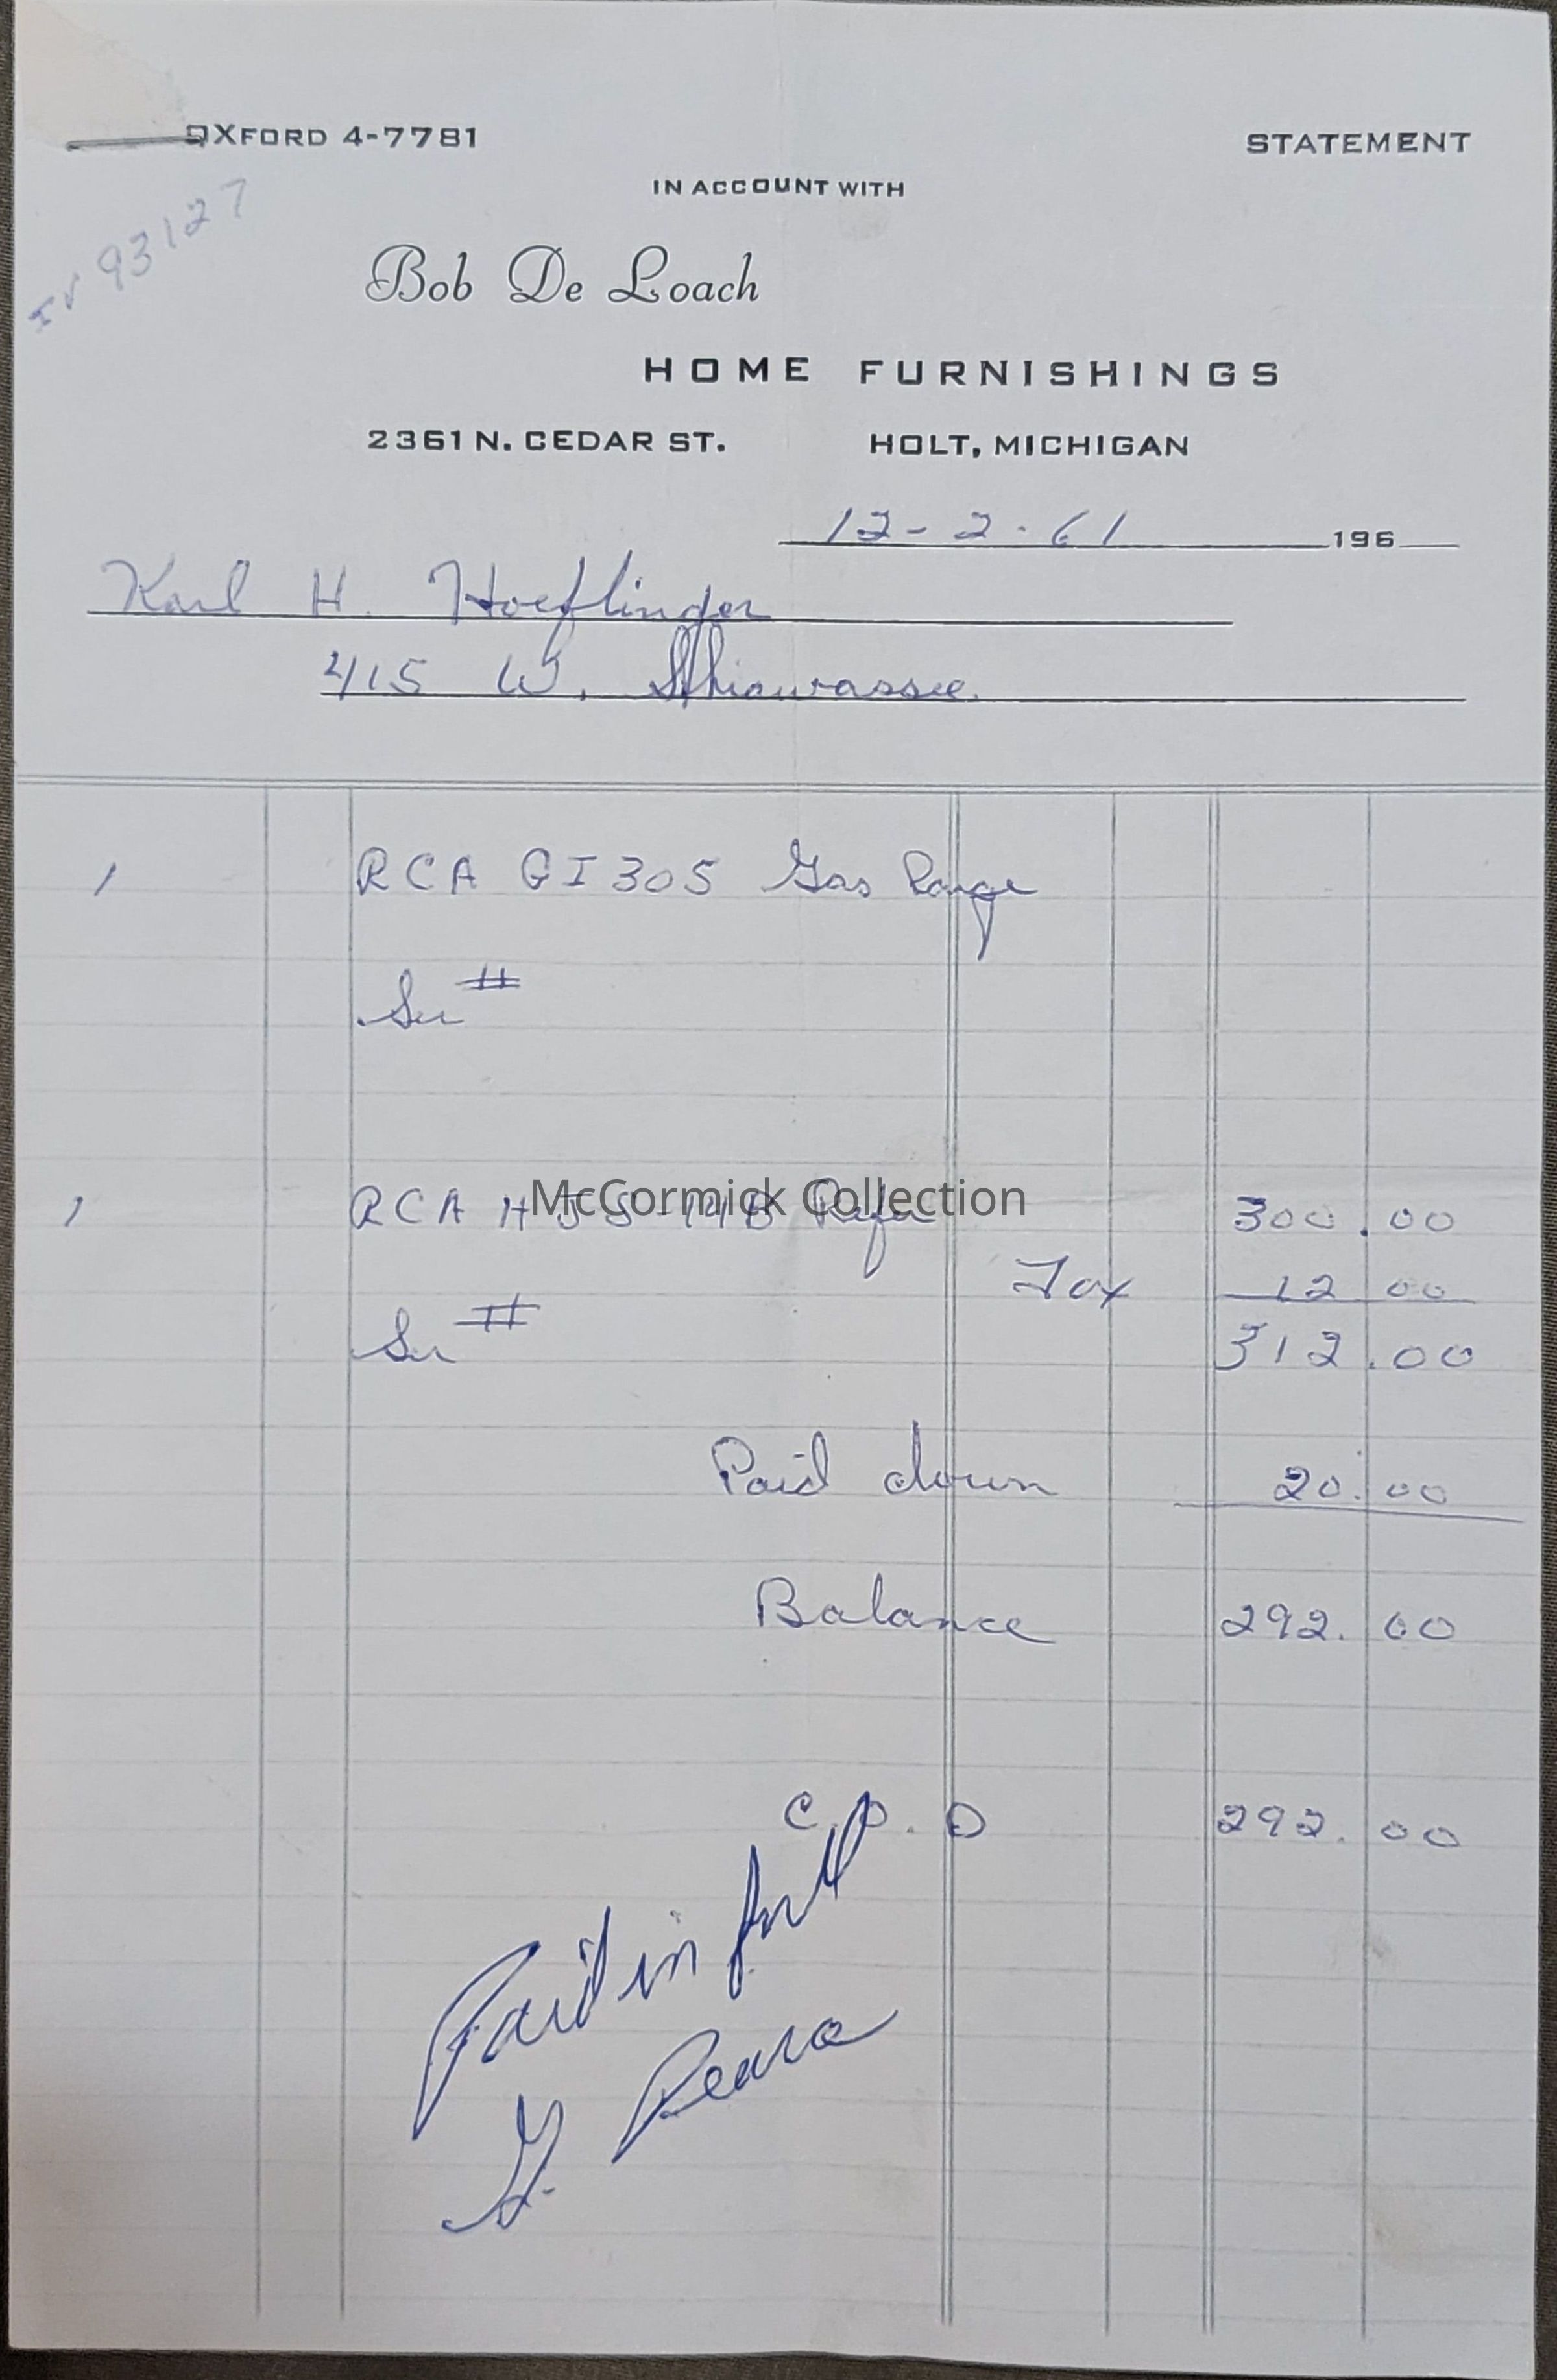 OXFORD 4-7781 STATEMENT
IN ACCOUNT WITH
Iv 93127
Bob De Loach
HOME FURNISHINGS
2361 N. CEDAR ST. HOLT, MICHIGAN
12-2-61 196
Karl H. Hoeflinger
415 W. Shiawassee
1 RCA GI 305 Gas Range
Ser #
McCormick Collection
1 RCA Refer 300.00
Tax 12 00
Ser # 312.00
Paid down 20.00
Balance 292.00
C.O.D 292.00
Paid in full
G.